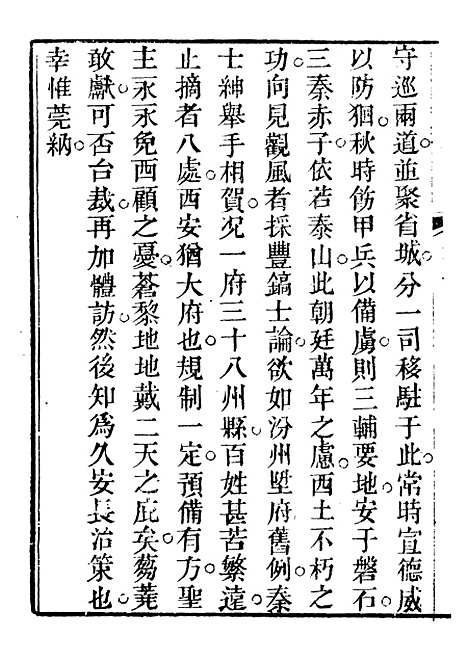 守巡兩道並聚省城分一司移駐于此常時宣德威
以防猖秋時飭甲兵以備虜則三輔要地安于磐石
三秦赤子依若泰山此朝廷萬年之慮西土不朽之
功向見觀風者採豐鎬士論欲如汾州陞府舊例秦
士紳舉手相賀况一府三十八州縣百姓甚苦繁遠
止摘者八處西安猶大府也規制一定預備有方聖
主永永免西顧之憂蒼黎地地戴二天之庇矣蒭蕘
敢獻可否台裁再加體訪然後知爲久安長治策也
幸惟莞納